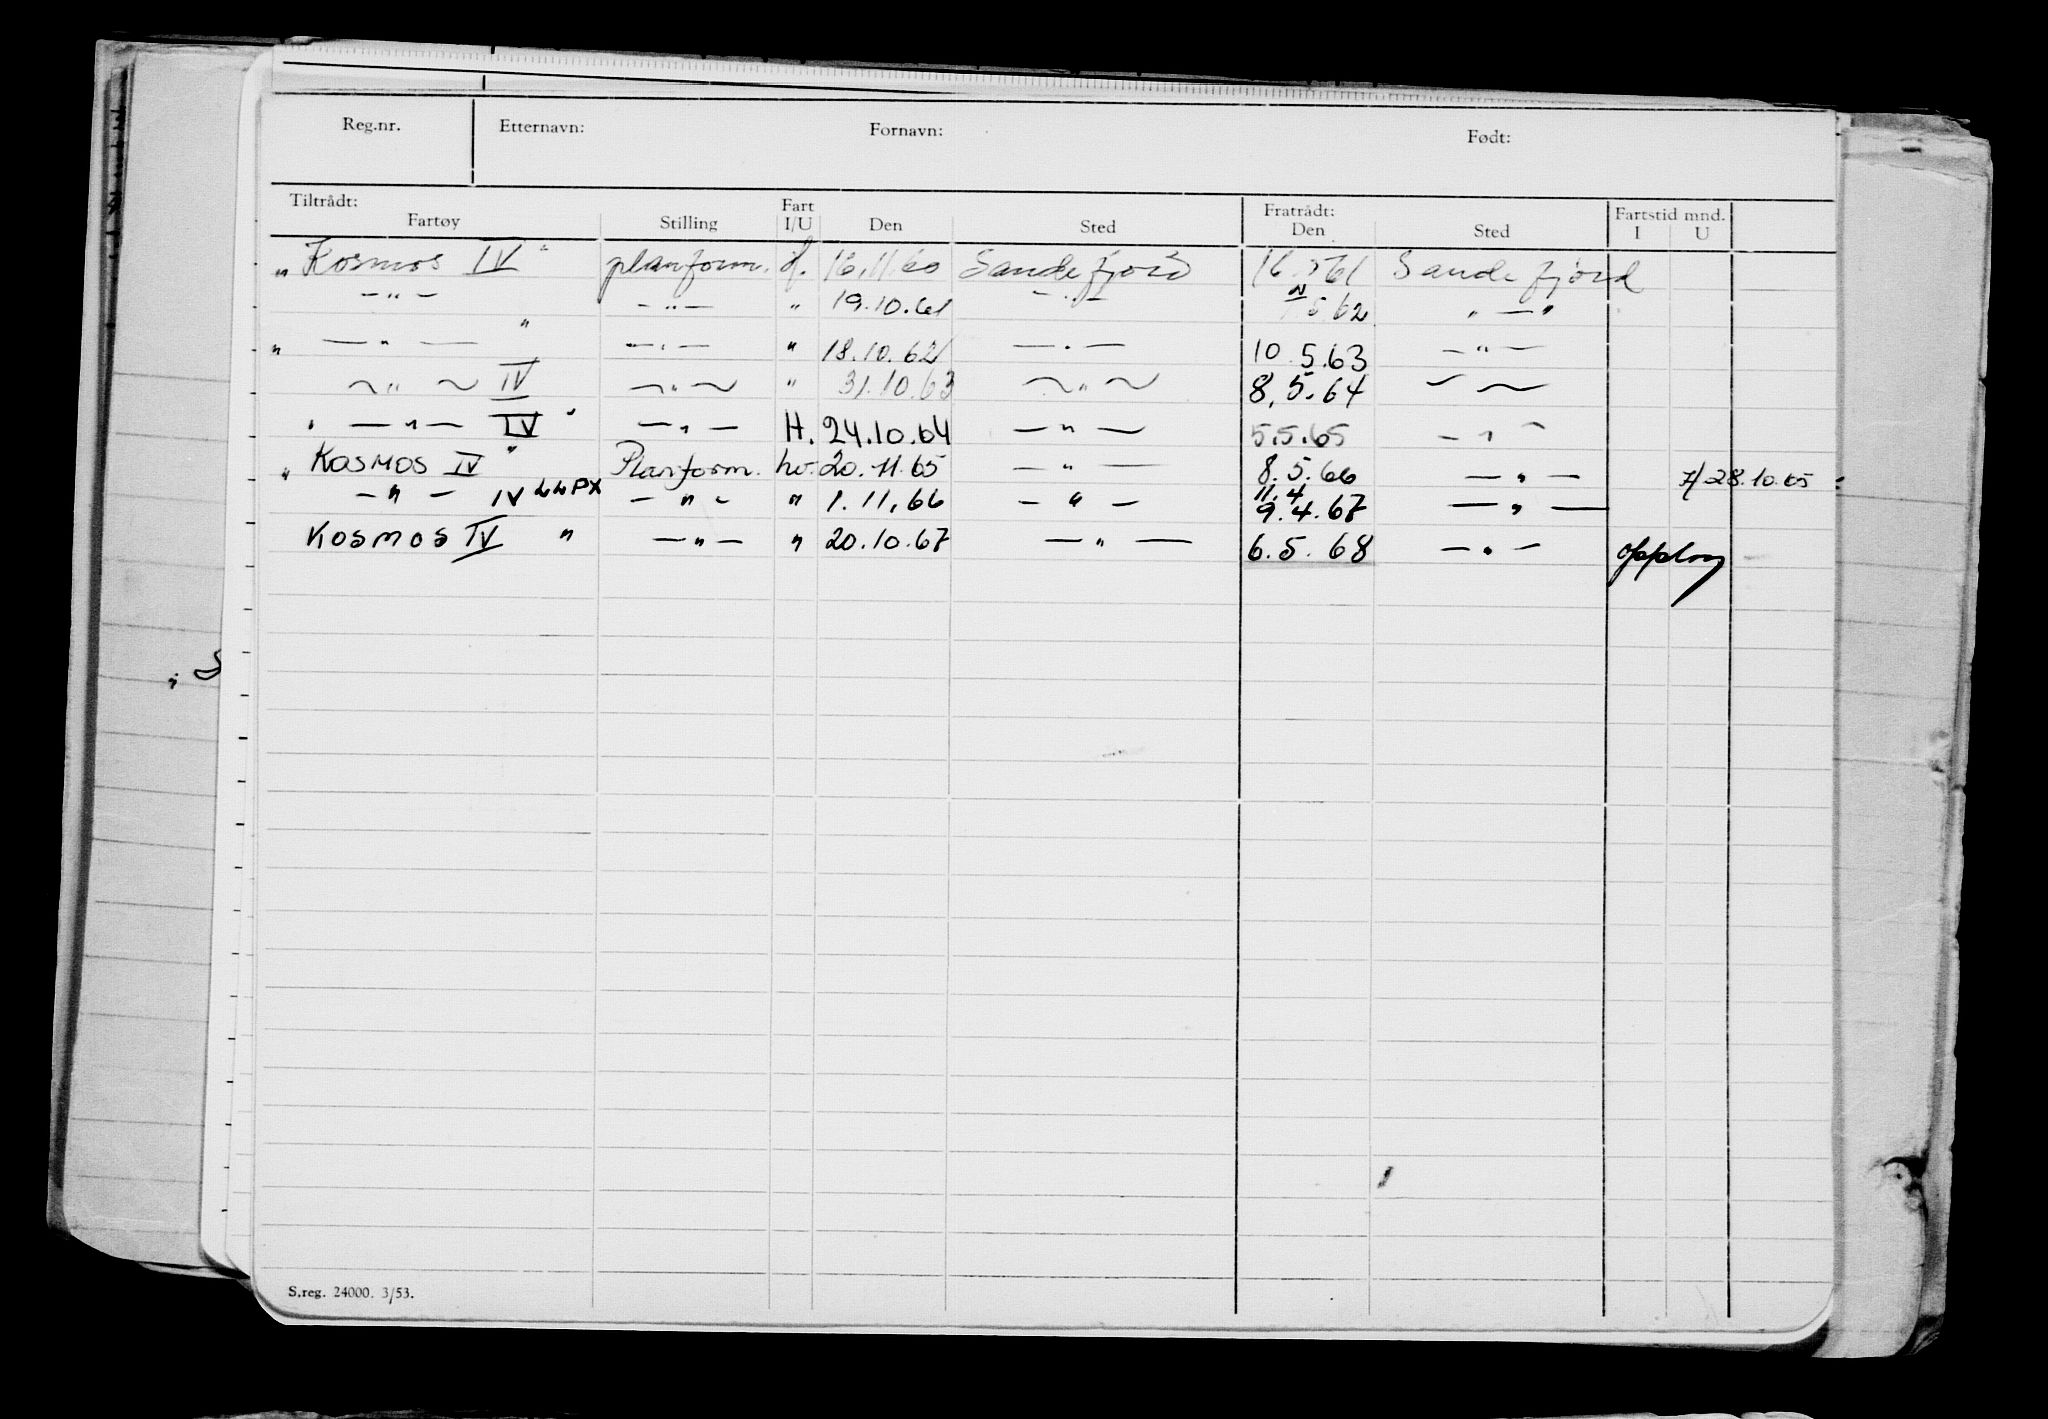 Reg.nr. Etternavn: Fornavn: Født:
Tiltrådt: Fratrådt: Fartstid mnd.
Fartøy Stilling Fart I/U Den Sted Den Sted I U
" Kosmos IV " planform. 16.11.60 Sandefjord 16.5.61 Sandefjord
— " — — " — " 19.10.61 — " — 5.62 " — "
" — " — " — " — " 18.10.62 — " — 10.5.63 — " —
~ " ~ IV ~ " ~ " 31.10.63 ~ " ~ 8.5.64 ~ ~
" — " — IV " — " — H. 24.10.64 — " — 5.5.65 — " —
" Kosmos IV " Planform. hv. 20.11.65 — " — 8.5.66 — " — 28.10.65
— " — IV LLPX — " — " 1.11.66 — " — 11.4 9.4.67 — " —
Kosmos IV " — " — " 20.10.67 — " — 6.5.68 — " —
S.reg. 24000. 3/53.